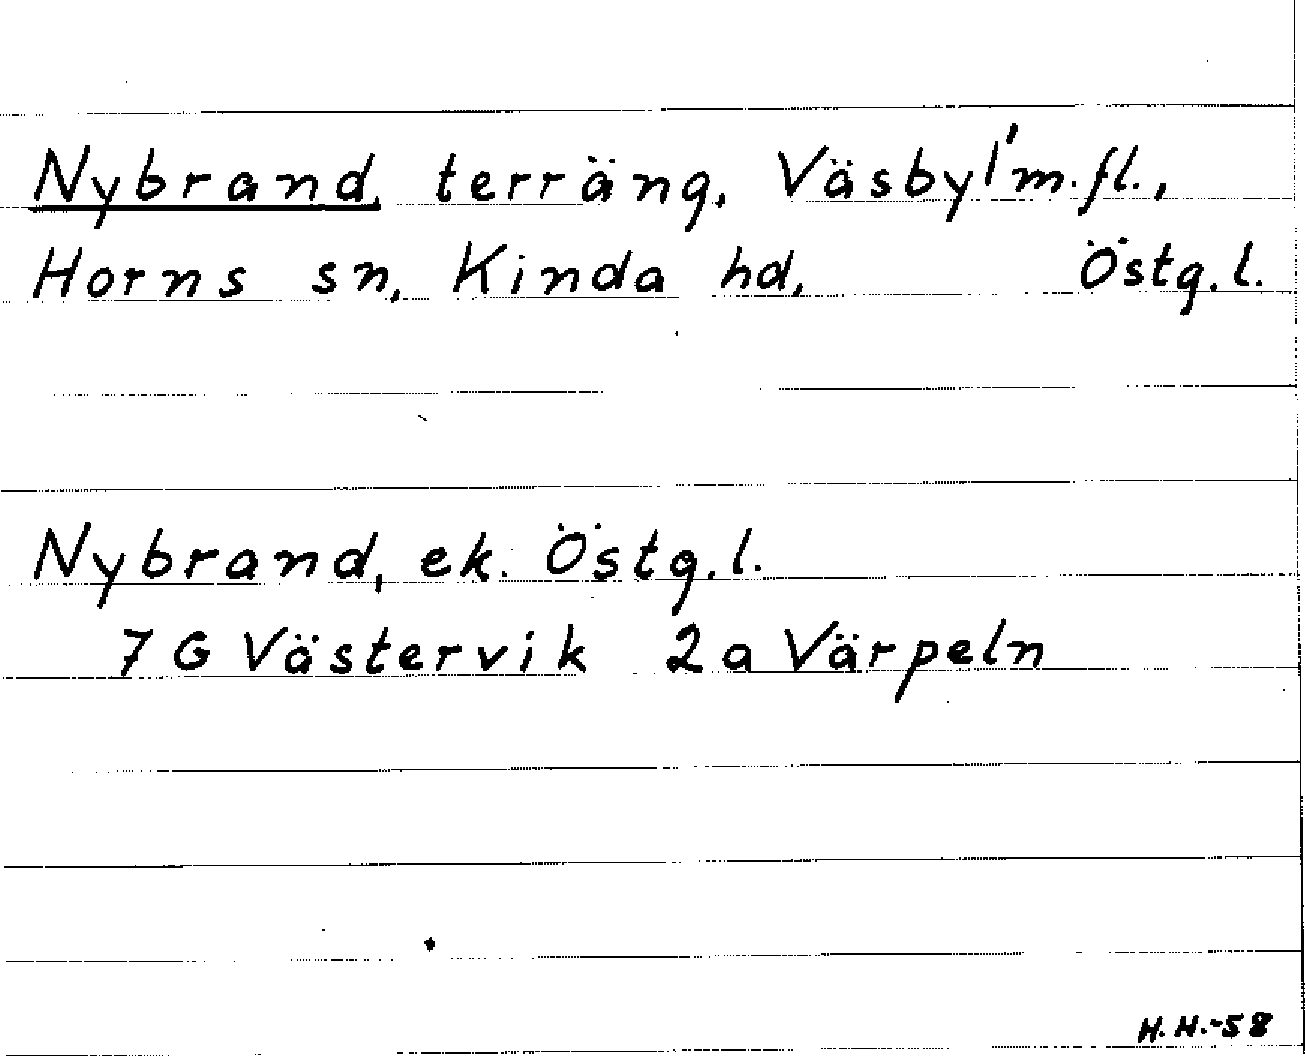 Nybrand, terräng, Väsby 1' m.fl.,
Horns sn, Kinda hd, Östg.l.
Nybrand, ek. Östg.l.
7 G Västervik 2a Värpeln
H.H.-58